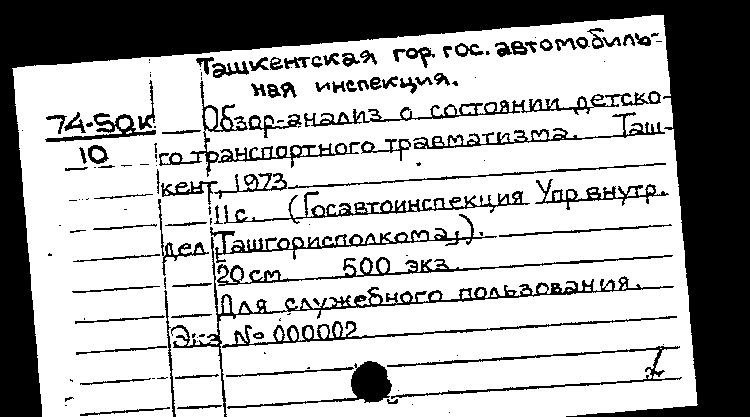 Ташкентская гор. гос. автомобиль-
ная инспекция.
74-5дк
10
Обзор-анализ о состоянии детско-
го транспортного травматизма. Таш-
кент, 1973
11 с. (Госавтоинспекция Упр внутр.
дел Ташгорисполкома).
20 см 500 экз.
Для служебного пользования.
Экз № 000002